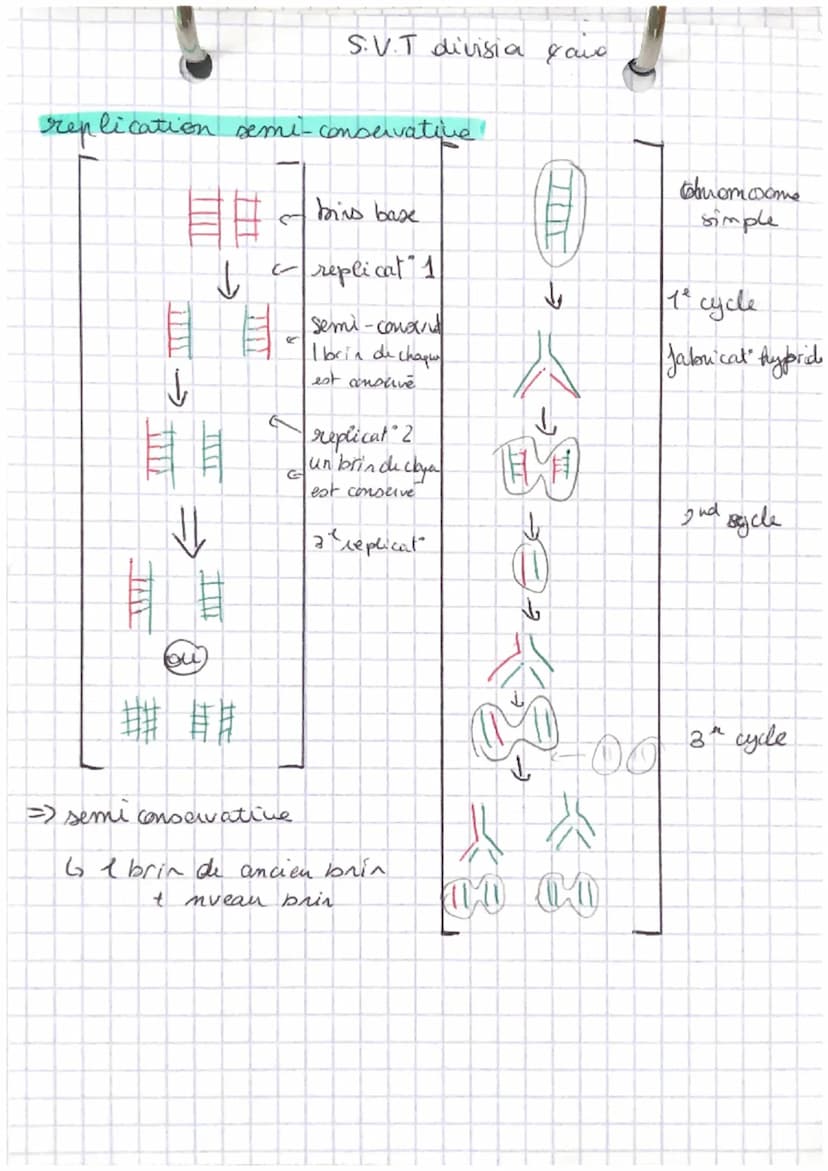 S.V.T division
replication semi-conservative
brins base
replicat° 1
semi-conserv
1 brin de chaque
est conservé
replicat° 2
un brin de chqa
est conservé
3e replicat°
ou
=> semi conservative
↳ 1 brin de ancien brin
+ nveau brin
Chromosome
simple
1e cycle
fabricat° hybrid
2nd cycle
3e cycle